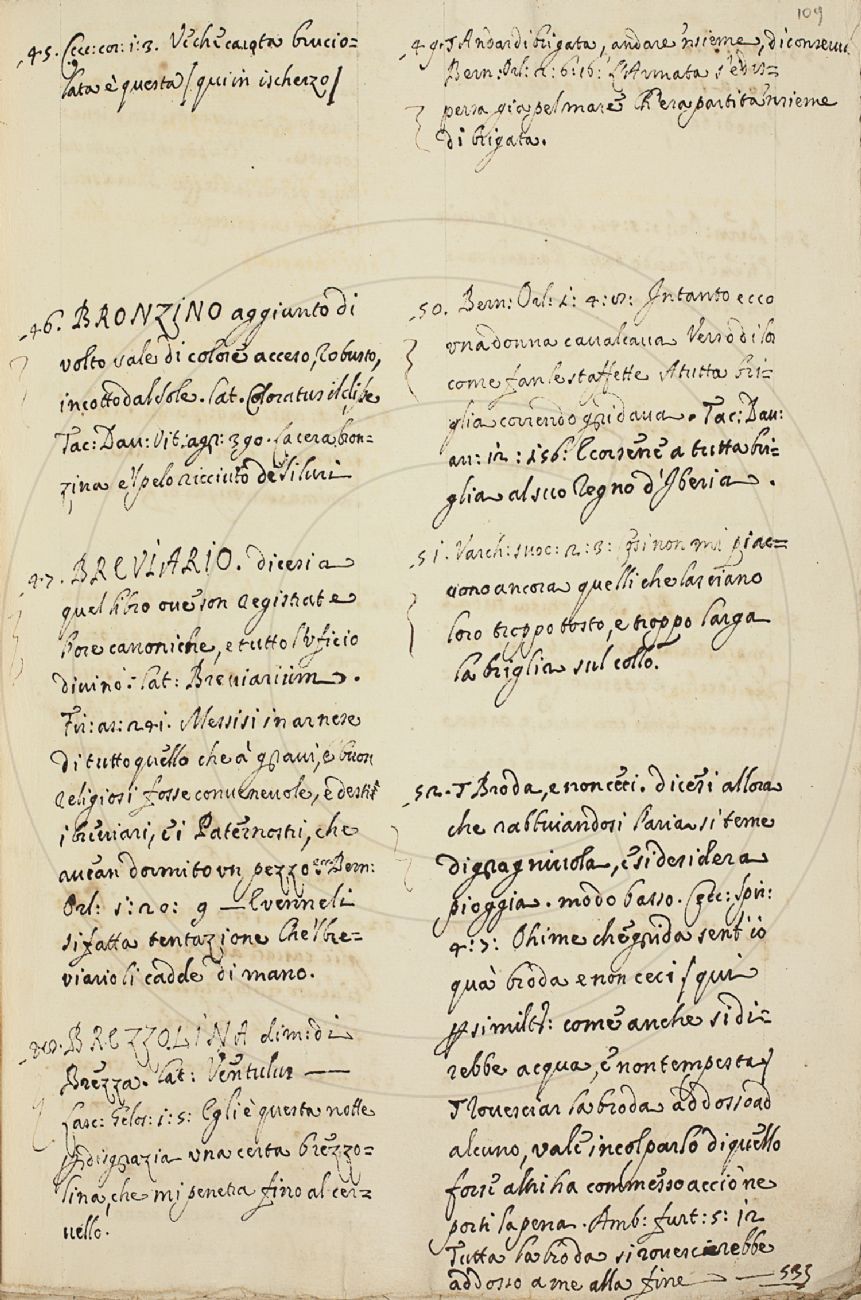 109
45. Cecc: cor: 1: 3. Ve che carota brucio=
lata è questa / qui in ischerzo /
46. BRONZINO aggiunto di
volto vale di colore acceso, robusto,
incotto dal sole. lat. Coloratus
Tac: Dau: Vit: agr: 390. la cera bron=
zina e 'l pelo ricciuto de Siluri
47. BREVIARIO. dicesi a
quel libro oue son registrate
l'ore canoniche, e tutto l'uficio
diuino. lat: Breuiarium.
Fir: as: 241. Messisi in arnese
di tutto quello che à graui, e buon
religiosi fosse conueneuole, e desti
i breuiari, e i Paternostri, che
auean dormito un pezzo Bern:
Orl: 1: 20: 9 — E venneli
si fatta tentazione che 'l bre=
viario li cadde di mano.
48. BREZZOLINA dim: di
Brezza. lat: Ventulus ——
Lasc: Gelos: 1: 5: Egli è questa notte
per disgrazia una certa brezzo=
lina, che mi penetra fino al cer=
uello.
49. Andar di brigata, andare insieme, di conserua
Bern: Orl: 2: 6: 16: L'Armata s'è dis=
persa gia pel mare Ch'era partita insieme
di brigata.
50. Bern: Orl: 1: 4: Intanto ecco
una donna caualcaua Verso di lor
come fan le staffette A tutta bri=
glia correndo gridaua. Tac: Dau:
an: 12: 156: E corsene a tutta bri=
glia al suo Regno d'Iberia.
51. Varch: suoc: 2: 3: non mi piac=
ciono ancora quelli che lasciano
loro troppo tosto, e troppo larga
la briglia sul collo.
52. Broda, e non ceci. dicesi allora
che rabbuiandosi l'aria si teme
di gragniuola, e si desidera
pioggia. modo basso. Cecc: spir:
4: 7: Ohime che grida sent'io
qua broda e non ceci / qui
per similit: come anche si di=
rebbe acqua, e non tempesta /
Rouesciar la broda addosso ad
alcuno, vale incolparlo di quello
forse altri ha commesso acciò ne
porti la pena. Amb: furt: 5: 12
Tutta la broda si rouescierebbe
addosso a me alla fine — 533